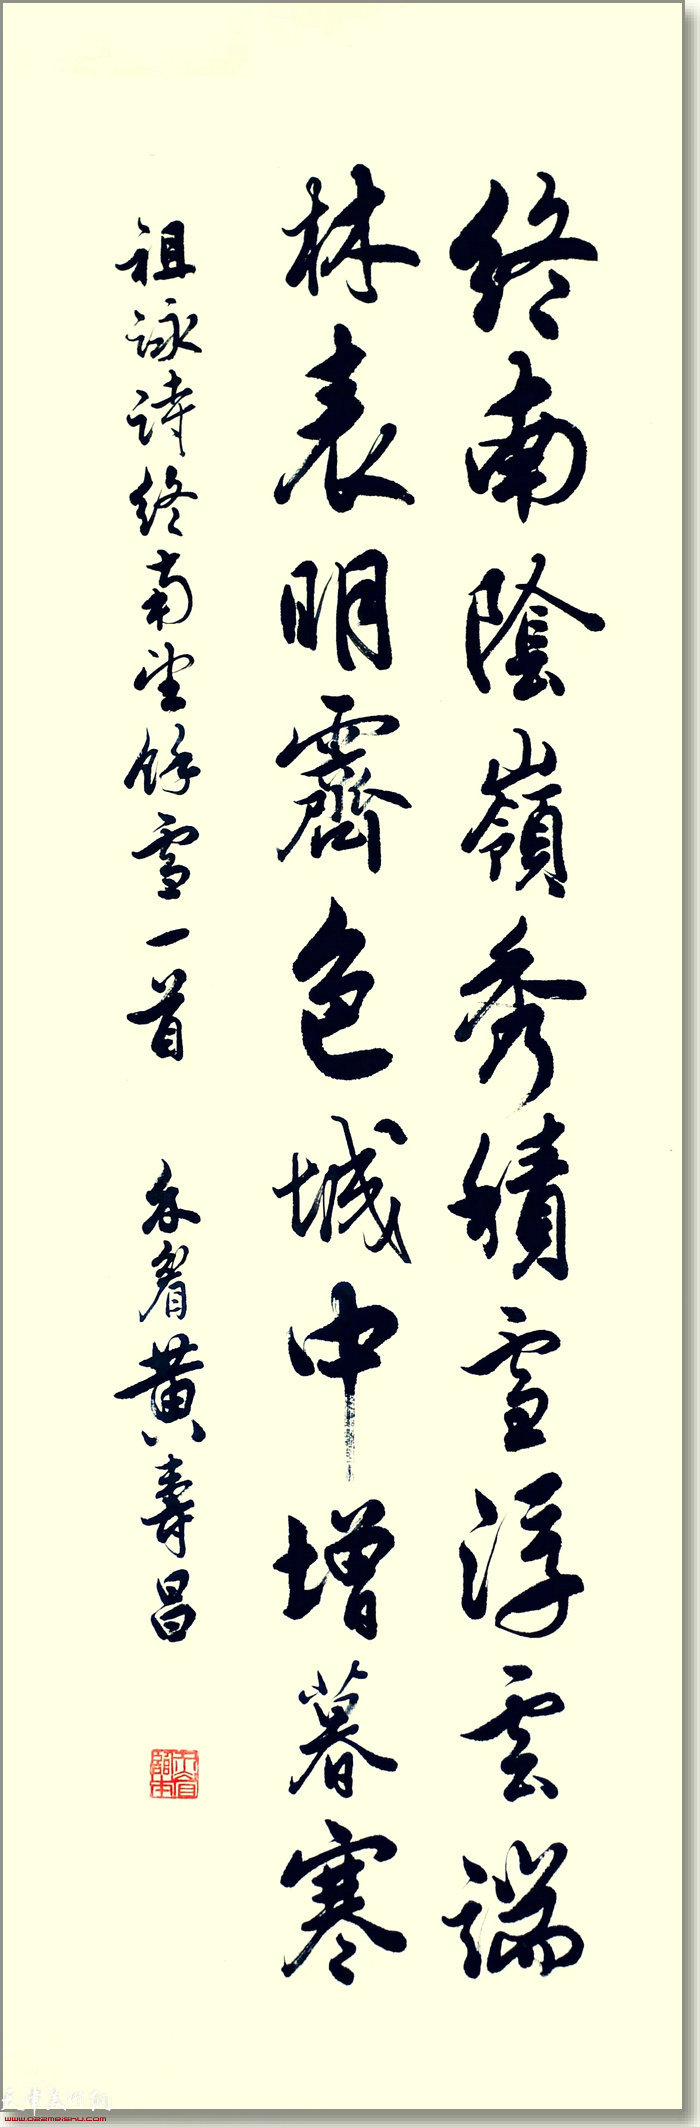 終南陰嶺秀積雪浮雲端
林表明霽色城中增暮寒
祖詠詩終南望餘雪一首 黄壽昌
www.022meishu.com